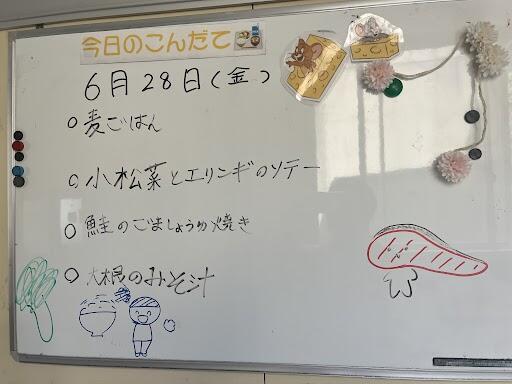 今日のこんだて
6月28日(金)
○麦ごはん
○小松菜とエリンギのソテー
○鮭のごましょうゆ焼き
○大根のみそ汁